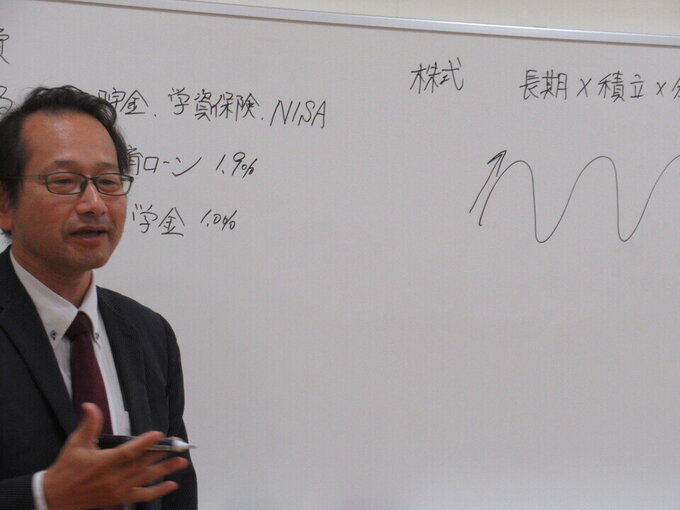 貯金、学資保険、NISA
ローン 1.9%
学金 1.0%
株式 長期×積立×